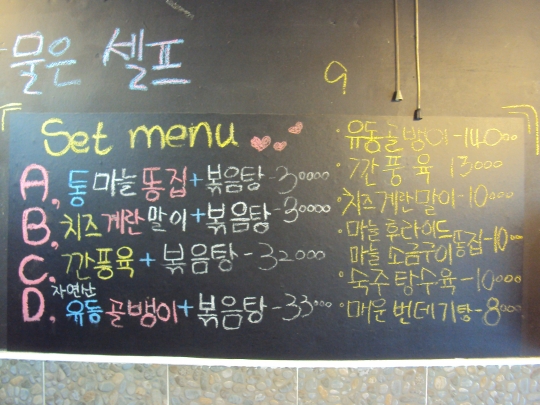 물은 셀프
9
Set menu
A, 통마늘똥집+볶음탕-30000
B, 치즈계란말이+볶음탕-30000
C. 깐풍육+볶음탕-32000
D. 자연산
유동골뱅이+볶음탕-33000
·유동골뱅이-14000
·깐풍육 13000
·치즈계란말이-10000
·마늘후라이드
마늘소금구이똥집-10000
·숙주탕수육-10000
·매운번데기탕-8000